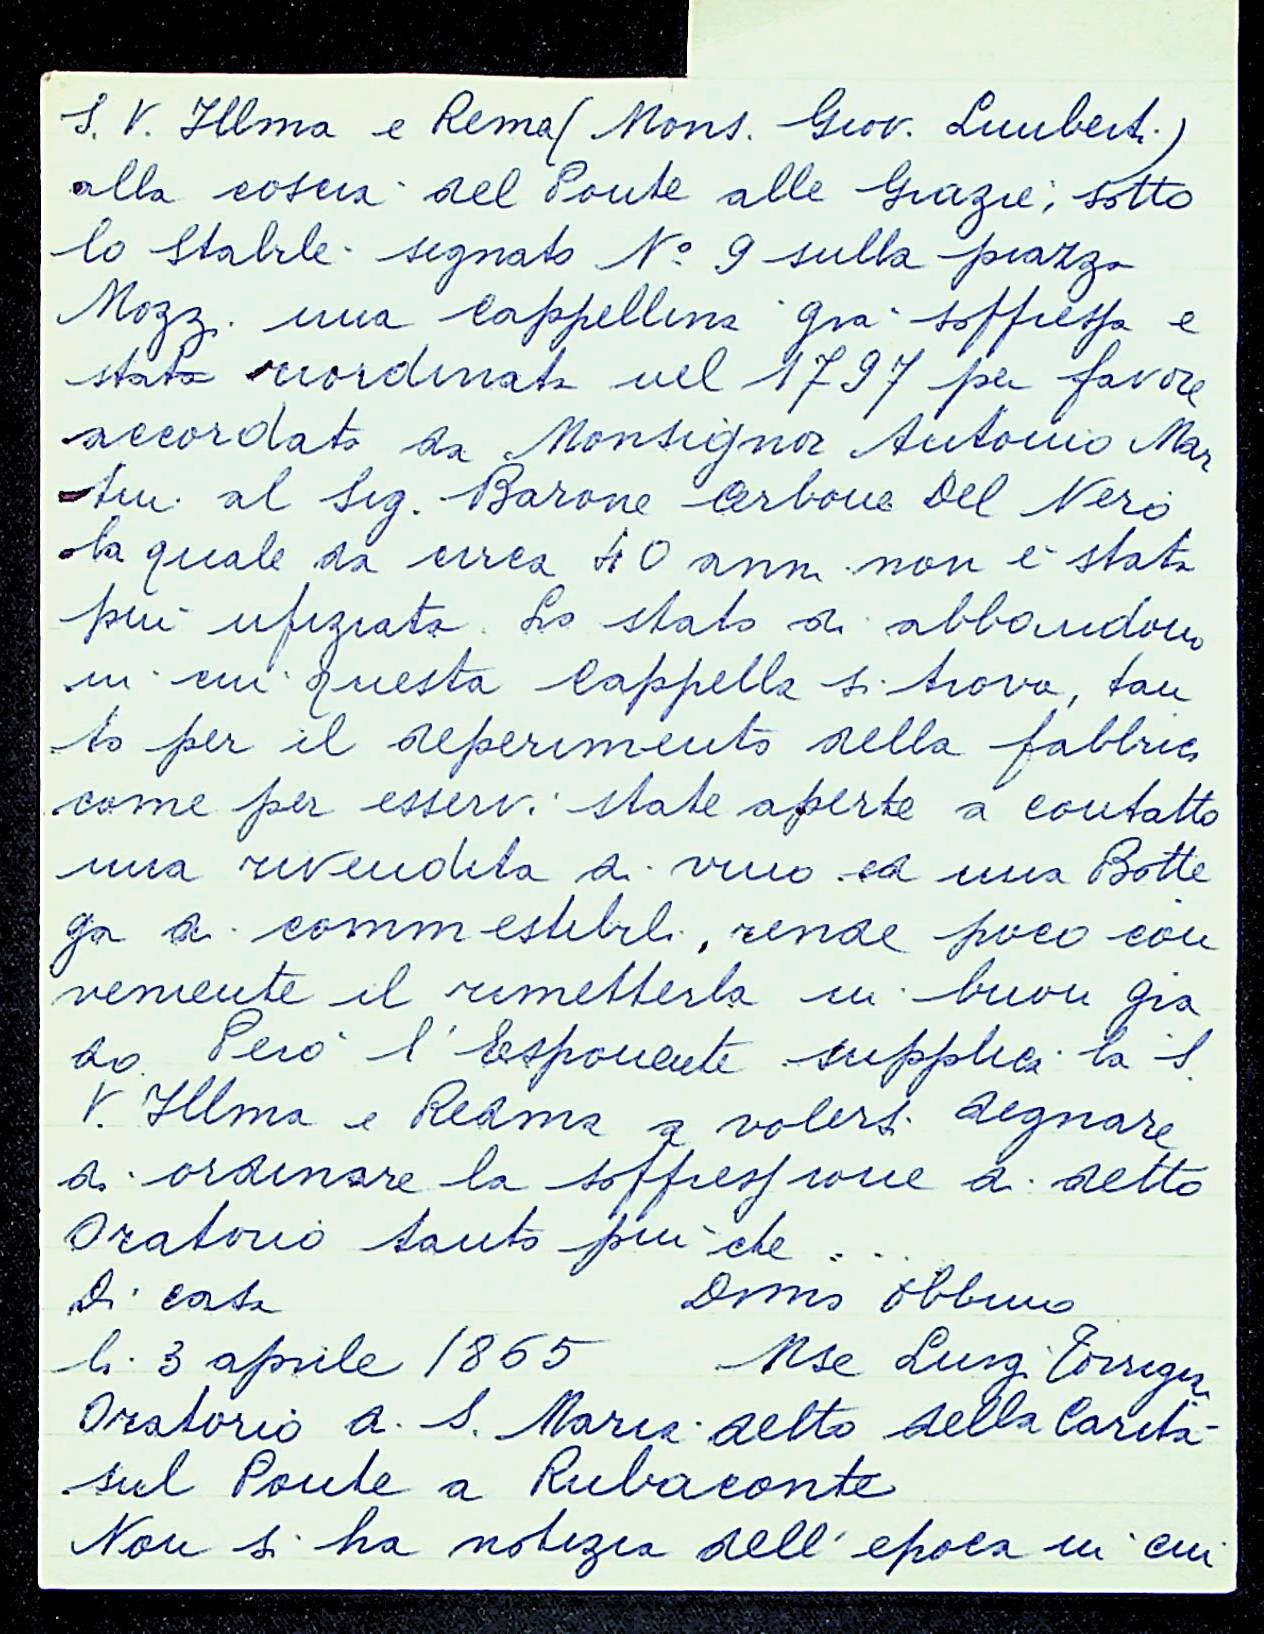 S. V. Illma e Rema (Mons. Giov. Limberti)
alla coscia del Ponte alle Grazie, sotto
lo stabile segnato N° 9 sulla piazza
Mozzi una cappellina già soffressa e
stata riordinata nel 1797 per favore
accordato da Monsignor Antonio Mar
tini al Sig. Barone Cerbone Del Nero
la quale da circa 40 anni non è stata
più ufiziata. Lo stato di abbandono
in cui questa Cappella si trova, tan
to per il deperimento della fabbrica
come per esservi state aperte a contatto
una rivendita di vino ed una Botte
ga di commestibili, rende poco con
veniente il rimetterla in buon gra
do. Però l'Esponente supplica la S.
V. Illma e Redma a volersi degnare
di ordinare la soffressione di detto
Oratorio tanto più che ....
Di casa Dmno Obbmo
li 3 aprile 1865 Mse Luigi Torrigiani
Oratorio di S. Maria detto della Carità
sul Ponte a Rubaconte
Non si ha notizia dell'epoca in cui